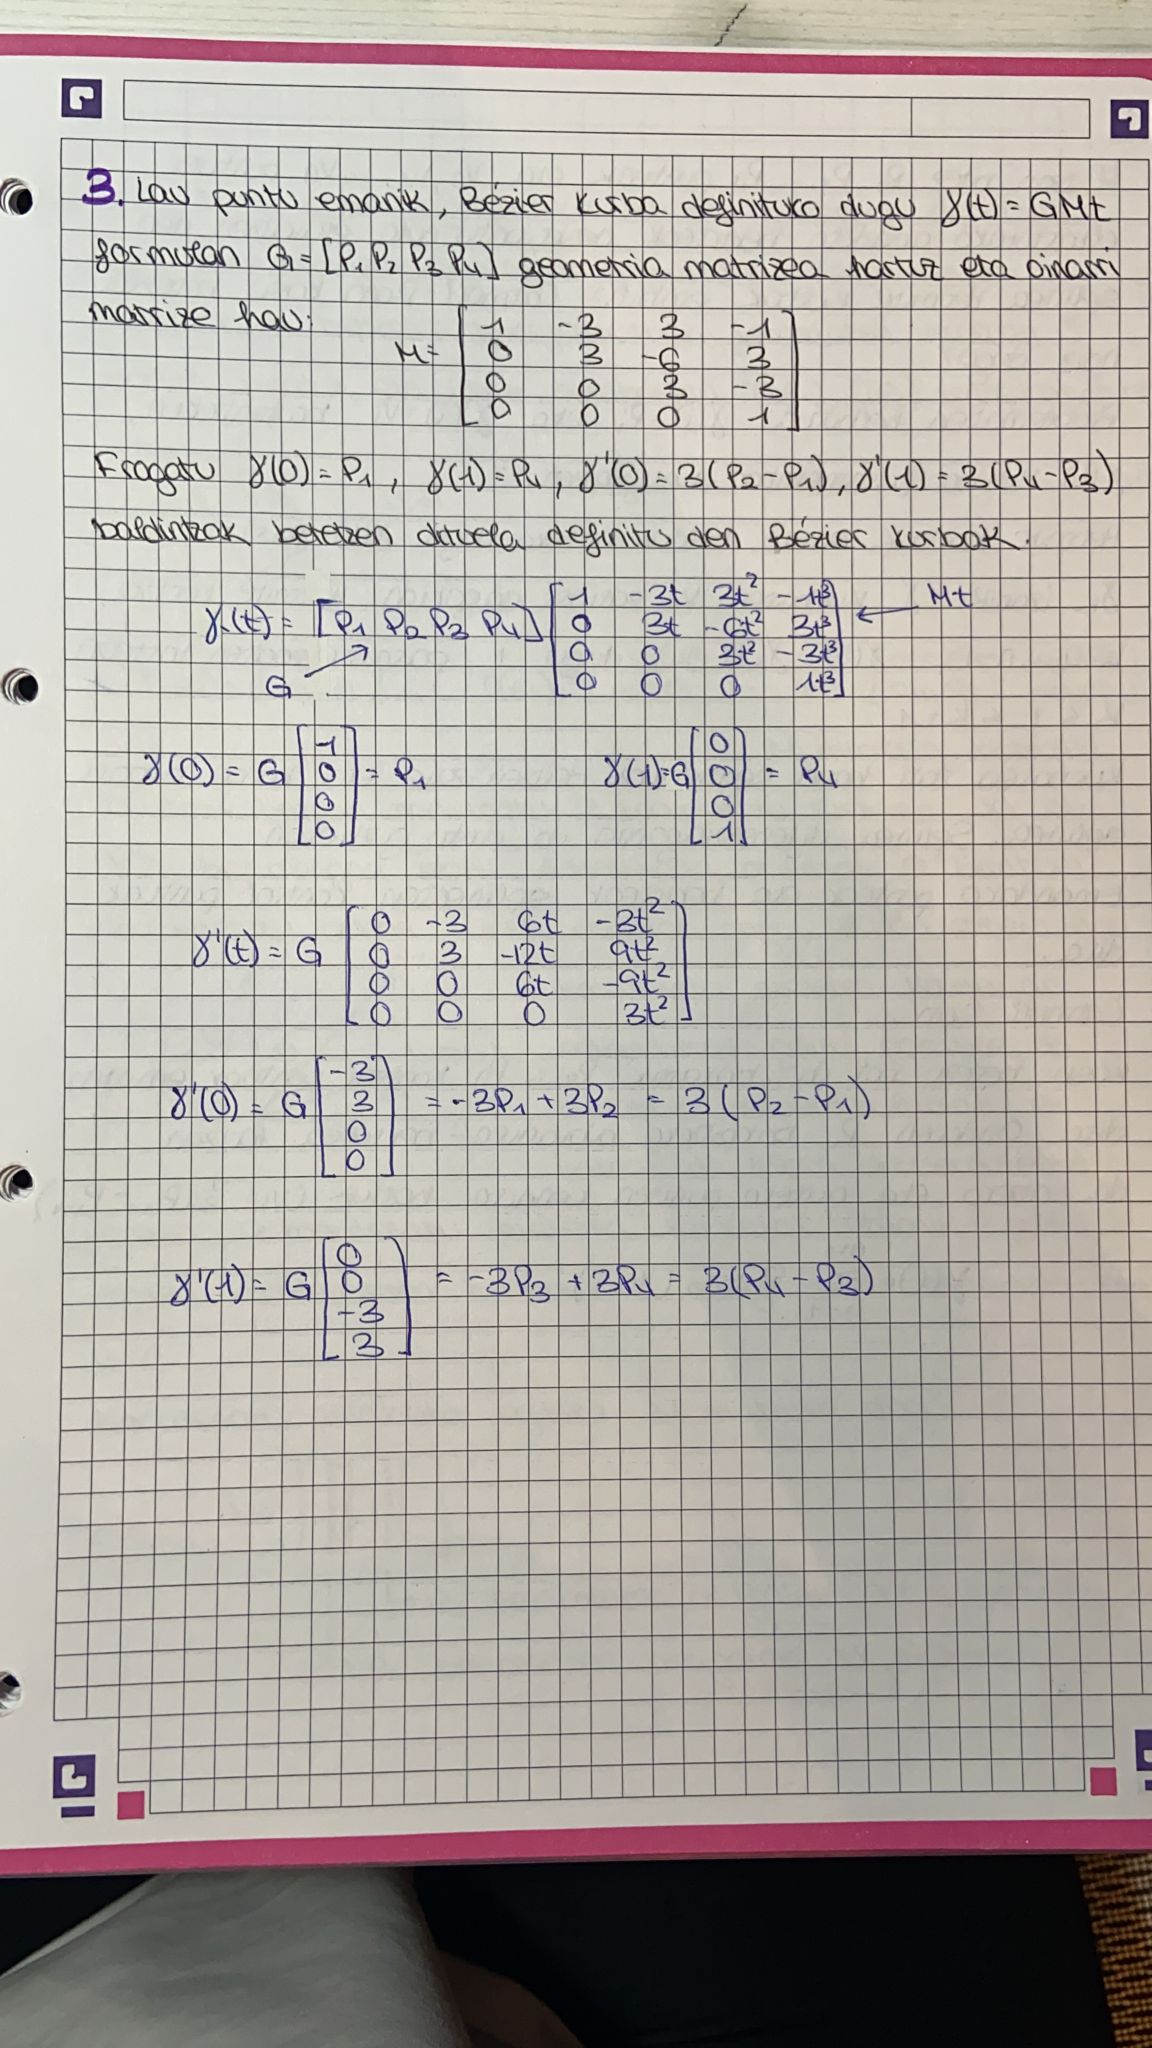 3. Lau puntu emanik, Bézier kurba definituko dugu γ(t) = GMt
formulan G = [P₁ P₂ P₃ P₄] geometria matrizea hartuz eta oinarri
matrize hau:
M = [1 -3 3 -1
0 3 -6 3
0 0 3 -3
0 0 0 1]
Frogatu γ(0) = P₁, γ(1) = P₄, γ'(0) = 3(P₂ - P₁), γ'(1) = 3(P₄ - P₃)
baldintzak betetzen dituela definitu den Bézier kurbak.
γ(t) = [P₁ P₂ P₃ P₄] [1 -3t 3t² -1t³ ← Mt
0 3t -6t² 3t³
0 0 3t² -3t³
0 0 0 1t³]
G
γ(0) = G [1 0 0 0] = P₁ γ(1) = G [0 0 0 1] = P₄
γ'(t) = G [0 -3 6t -3t²
0 3 -12t 9t²
0 0 6t -9t²
0 0 0 3t²]
γ'(0) = G [-3 3 0 0] = -3P₁ + 3P₂ = 3(P₂ - P₁)
γ'(1) = G [0 0 -3 3] = -3P₃ + 3P₄ = 3(P₄ - P₃)